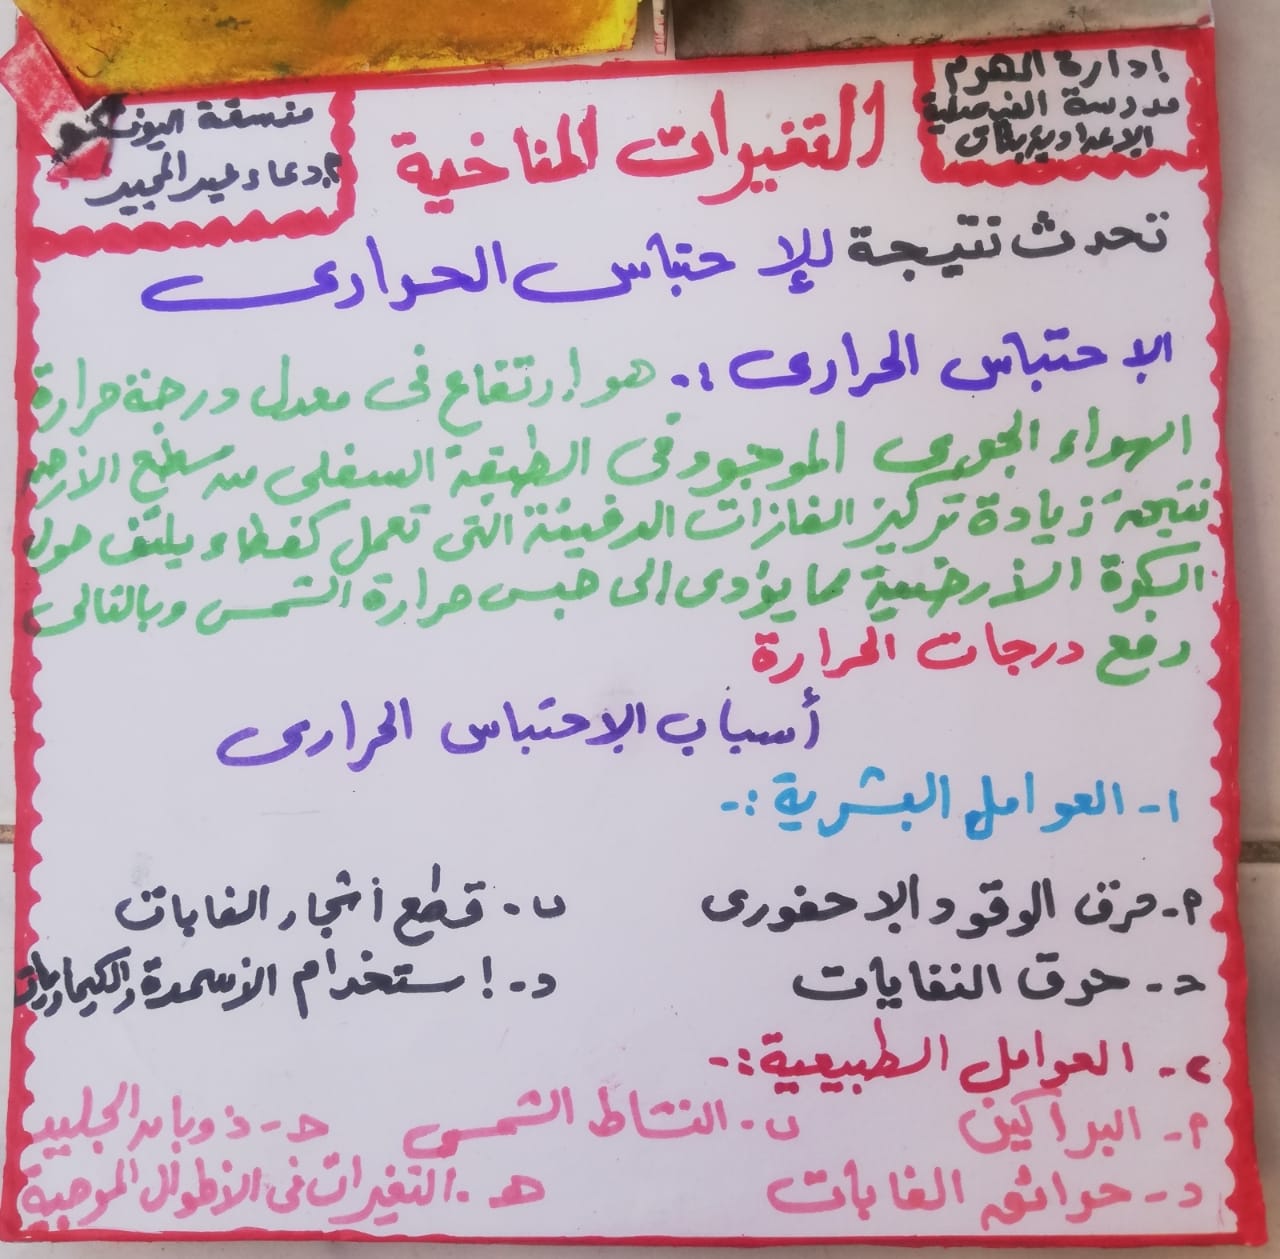 إدارة الهرم
مدرسة الفيصلية
الإعدادية بنات
منسقة اليونسكو
م. دعاء عبد المجيد
التغيرات المناخية
تحدث نتيجة للإحتباس الحرارى
الإحتباس الحرارى :. هو ارتفاع فى معدل درجة حرارة
الهواء الجوى الموجود فى الطبقة السفلى من سطح الأرض
نتيجة زيادة تركيز الغازات الدفيئة التى تعمل كغطاء يلتف حول
الكرة الأرضية مما يؤدى الى حبس حرارة الشمس وبالتالى
رفع درجات الحرارة
أسباب الإحتباس الحرارى
١- العوامل البشرية :-
م- حرق الوقود الإحفورى ب. قطع أشجار الغابات
حـ- حرق النفايات د-. إستخدام الأسمدة والكيماويات
٢- العوامل الطبيعية :-
م- البراكين ب. النشاط الشمسى حـ- ذوبان الجليد
د- حرائق الغابات هـ. التغيرات فى الأطوال الموجية